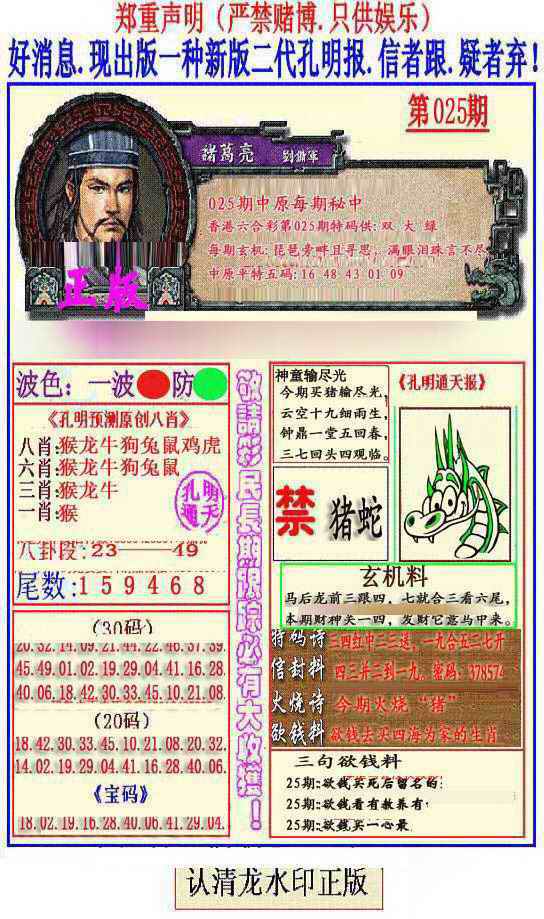 郑重声明（严禁赌博.只供娱乐）
好消息.现出版一种新版二代孔明报.信者跟.疑者弃!
第025期
諸葛亮 劉備軍
025期中原每期秘中
香港六合彩第025期特码供: 双 大 绿
每期玄机: 琵琶旁畔且寻思, 满眼泪珠言不尽
中原平特五码: 16 48 43 01 09
正版
波色: 一波 防
《孔明预测原创八肖》
八肖:猴龙牛狗兔鼠鸡虎
六肖:猴龙牛狗兔鼠
三肖:猴龙牛
一肖:猴
孔明
通天
八卦段: 23——49
尾数: 1 5 9 4 6 8
(30码)
20.32.14.09.21.44.22.46.37.39
45.49.01.02.19.29.04.41.16.28
40.06.18.42.30.33.45.10.21.08
(20码)
18.42.30.33.45.10.21.08.20.32.
14.02.19.29.04.41.16.28.40.06.
《宝码》
18.02.19.16.28.40.06.41.29.04.
敬請彩民長期跟踪必有大收獲!
神童输尽光
今期买猪输尽光,
云空十九细雨生,
钟鼎一堂五回春,
三七回头四观临。
《孔明通天报》
禁 猪蛇
玄机料
马后龙前三跟四, 七就合三看六尾,
本期财神关一四, 发财它意马中来。
特码诗 三四红中三二送, 一九合五二七开
信封料 四三并二到一九。密码: 378574
火烧诗 今期火烧“猪”
欲钱料 欲钱去买四海为家的生肖
三句欲钱料
25期:欲钱买死后留名的:
25期:欲钱看有教养有
25期:欲钱买一心最
认清龙水印正版